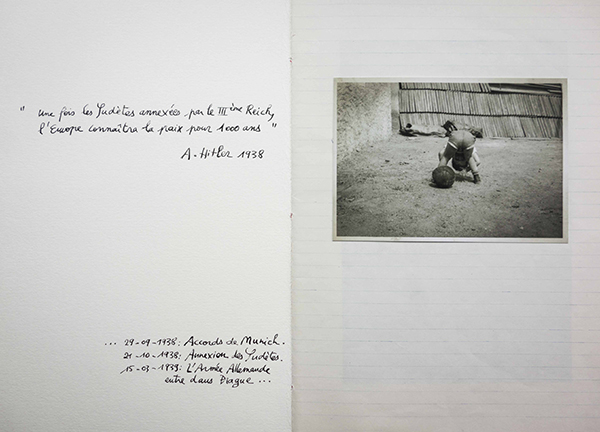 " une fois les Sudètes annexées, par le IIIème Reich,
l'Europe connaîtra la paix pour 1000 ans "
A. Hitler 1938
... 29-09-1938: Accords de Munich.
21-10-1938: Annexion des Sudètes.
15-03-1939: L'Armée Allemande
entre dans Prague ...